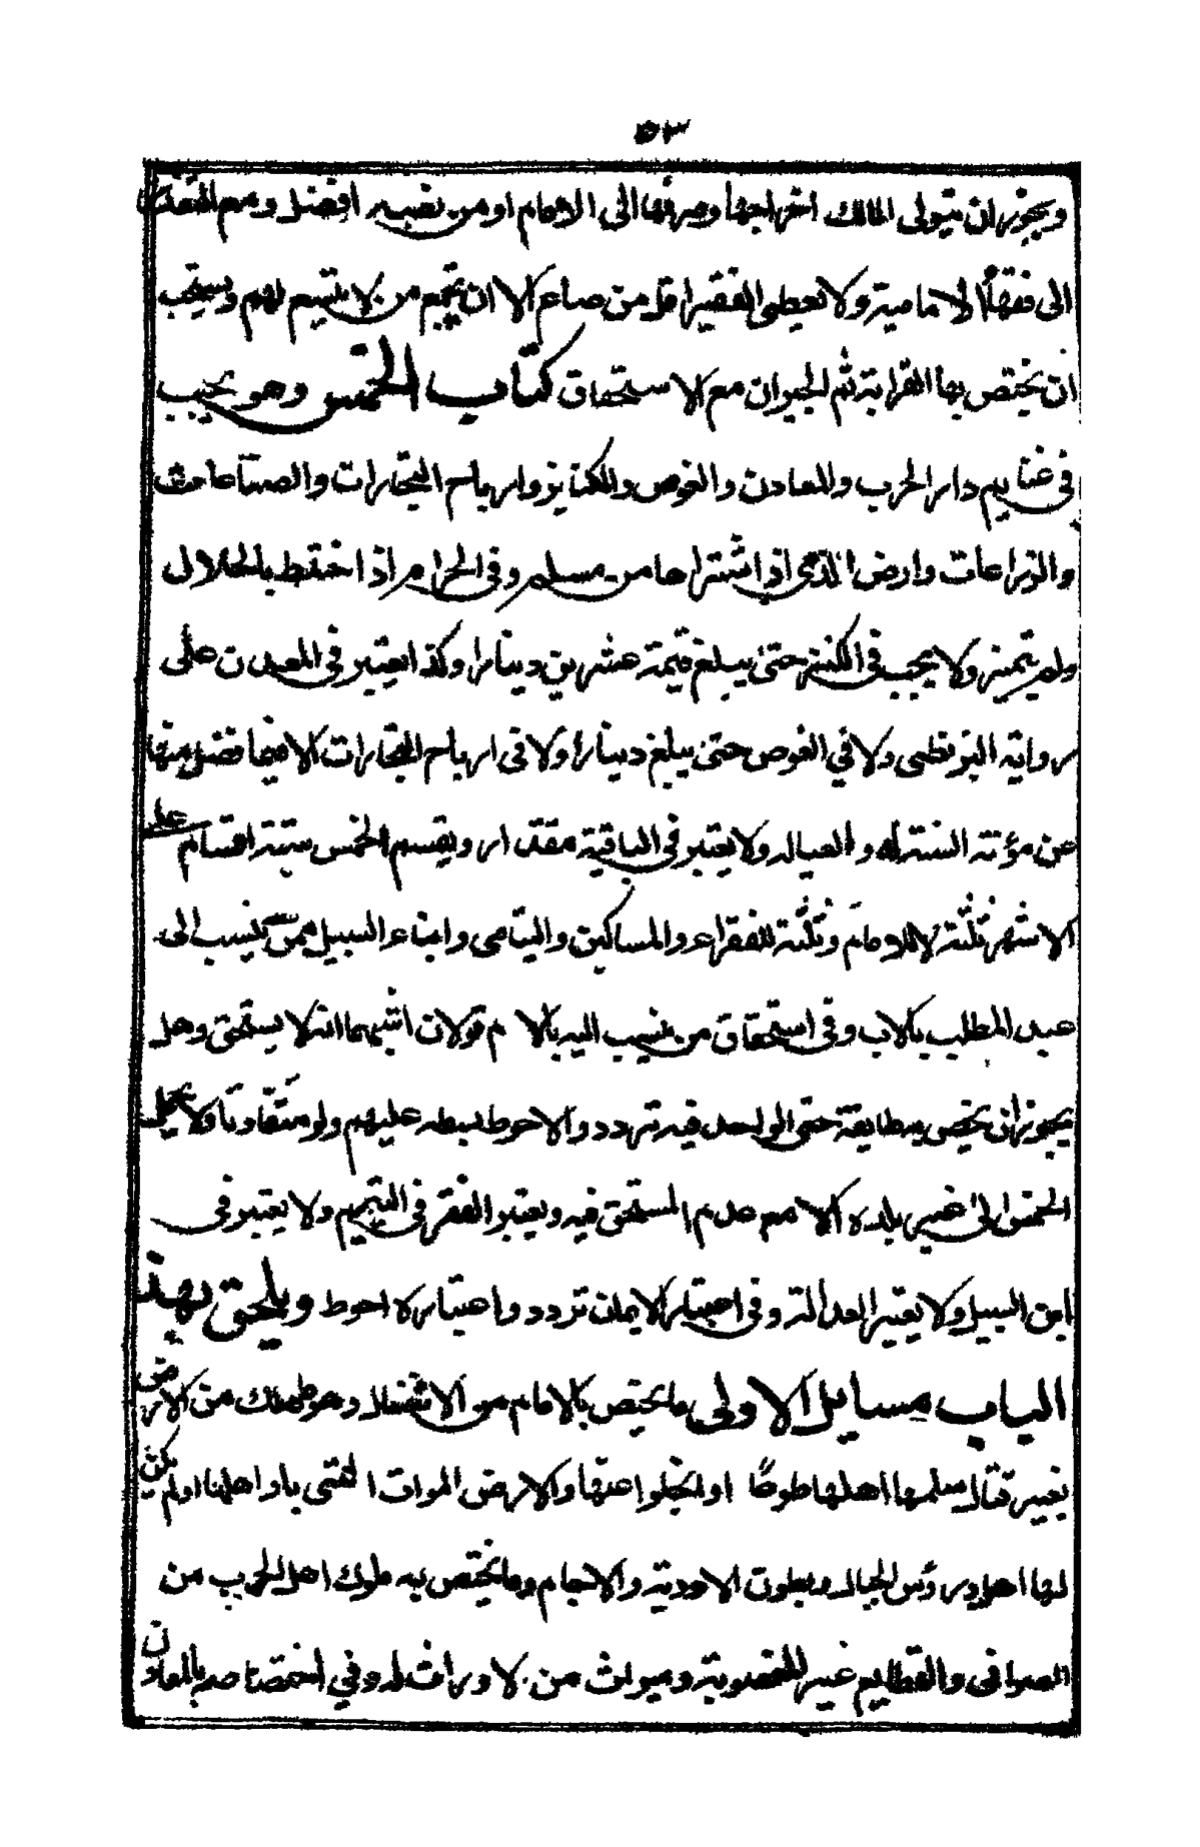 ٥٣
ويجوز ان يتولى المالك اخراجها وصرفها الى الامام او من نصبه افضل ومع التعذر
الى فقهاء الامامية ولا يعطى الفقير اقل من صاع الا ان يجتمع من لا يتسع لهم ويستحب
ان يختص بها القرابة ثم الجيران مع الاستحقاق كتاب الخمس وهو يجب
في غنايم دار الحرب والمعادن والغوص والكنايز وارباح التجارات والصناعات
والزراعات وارض الذمي اذا اشتراها من مسلم وفي الحرام اذا اختلط بالحلال
ولم يتميز ولا يجب في الكنز حتى يبلغ قيمة عشرين دينارا وكذا يعتبر في المعدن على
رواية البزنطى ولا في الغوص حتى يبلغ دينارا ولا في ارباح التجارات الا فيما فضل منها
عن مؤنة السنة له و العياله ولا يعتبر في الباقية مقدار ويقسم الخمس ستة اقسام على
الاشهر ثلثة للامام وثلثة للفقراء والمساكين واليتامى وابناء السبيل ممن ينسب الى
عبد المطلب بالاب وفي استحقاق من ينسب اليه بالام قولان اشبههما انه لا يستحق وهل
يجوز ان يخص به طايفة حتى الواحد فيه تردد والاحوط بسطه عليهم ولو متفاوتا ولا يحمل
الخمس الى غير بلده الا مع عدم المستحق فيه ويعتبر الفقر في اليتيم ولا يعتبر في
ابن السبيل ولا يعتبر العدالة وفي اعتبار الايمان تردد واعتباره احوط ويلحق بهذا
الباب مسايل الاولى ما يختص بالامام من الانفال وهو ما يملك من الارض
بغير قتال سلمها اهلها طوعا او انجلوا عنها والارض الموات التى باد اهلها او لم يكن
لها اهل ورؤس الجبال وبطون الاودية والاجام وما يختص به ملوك اهل الحرب من
الصوافى والقطايع غير المغصوبة وميراث من لا وراث له وفي اختصاصه بالمعادن